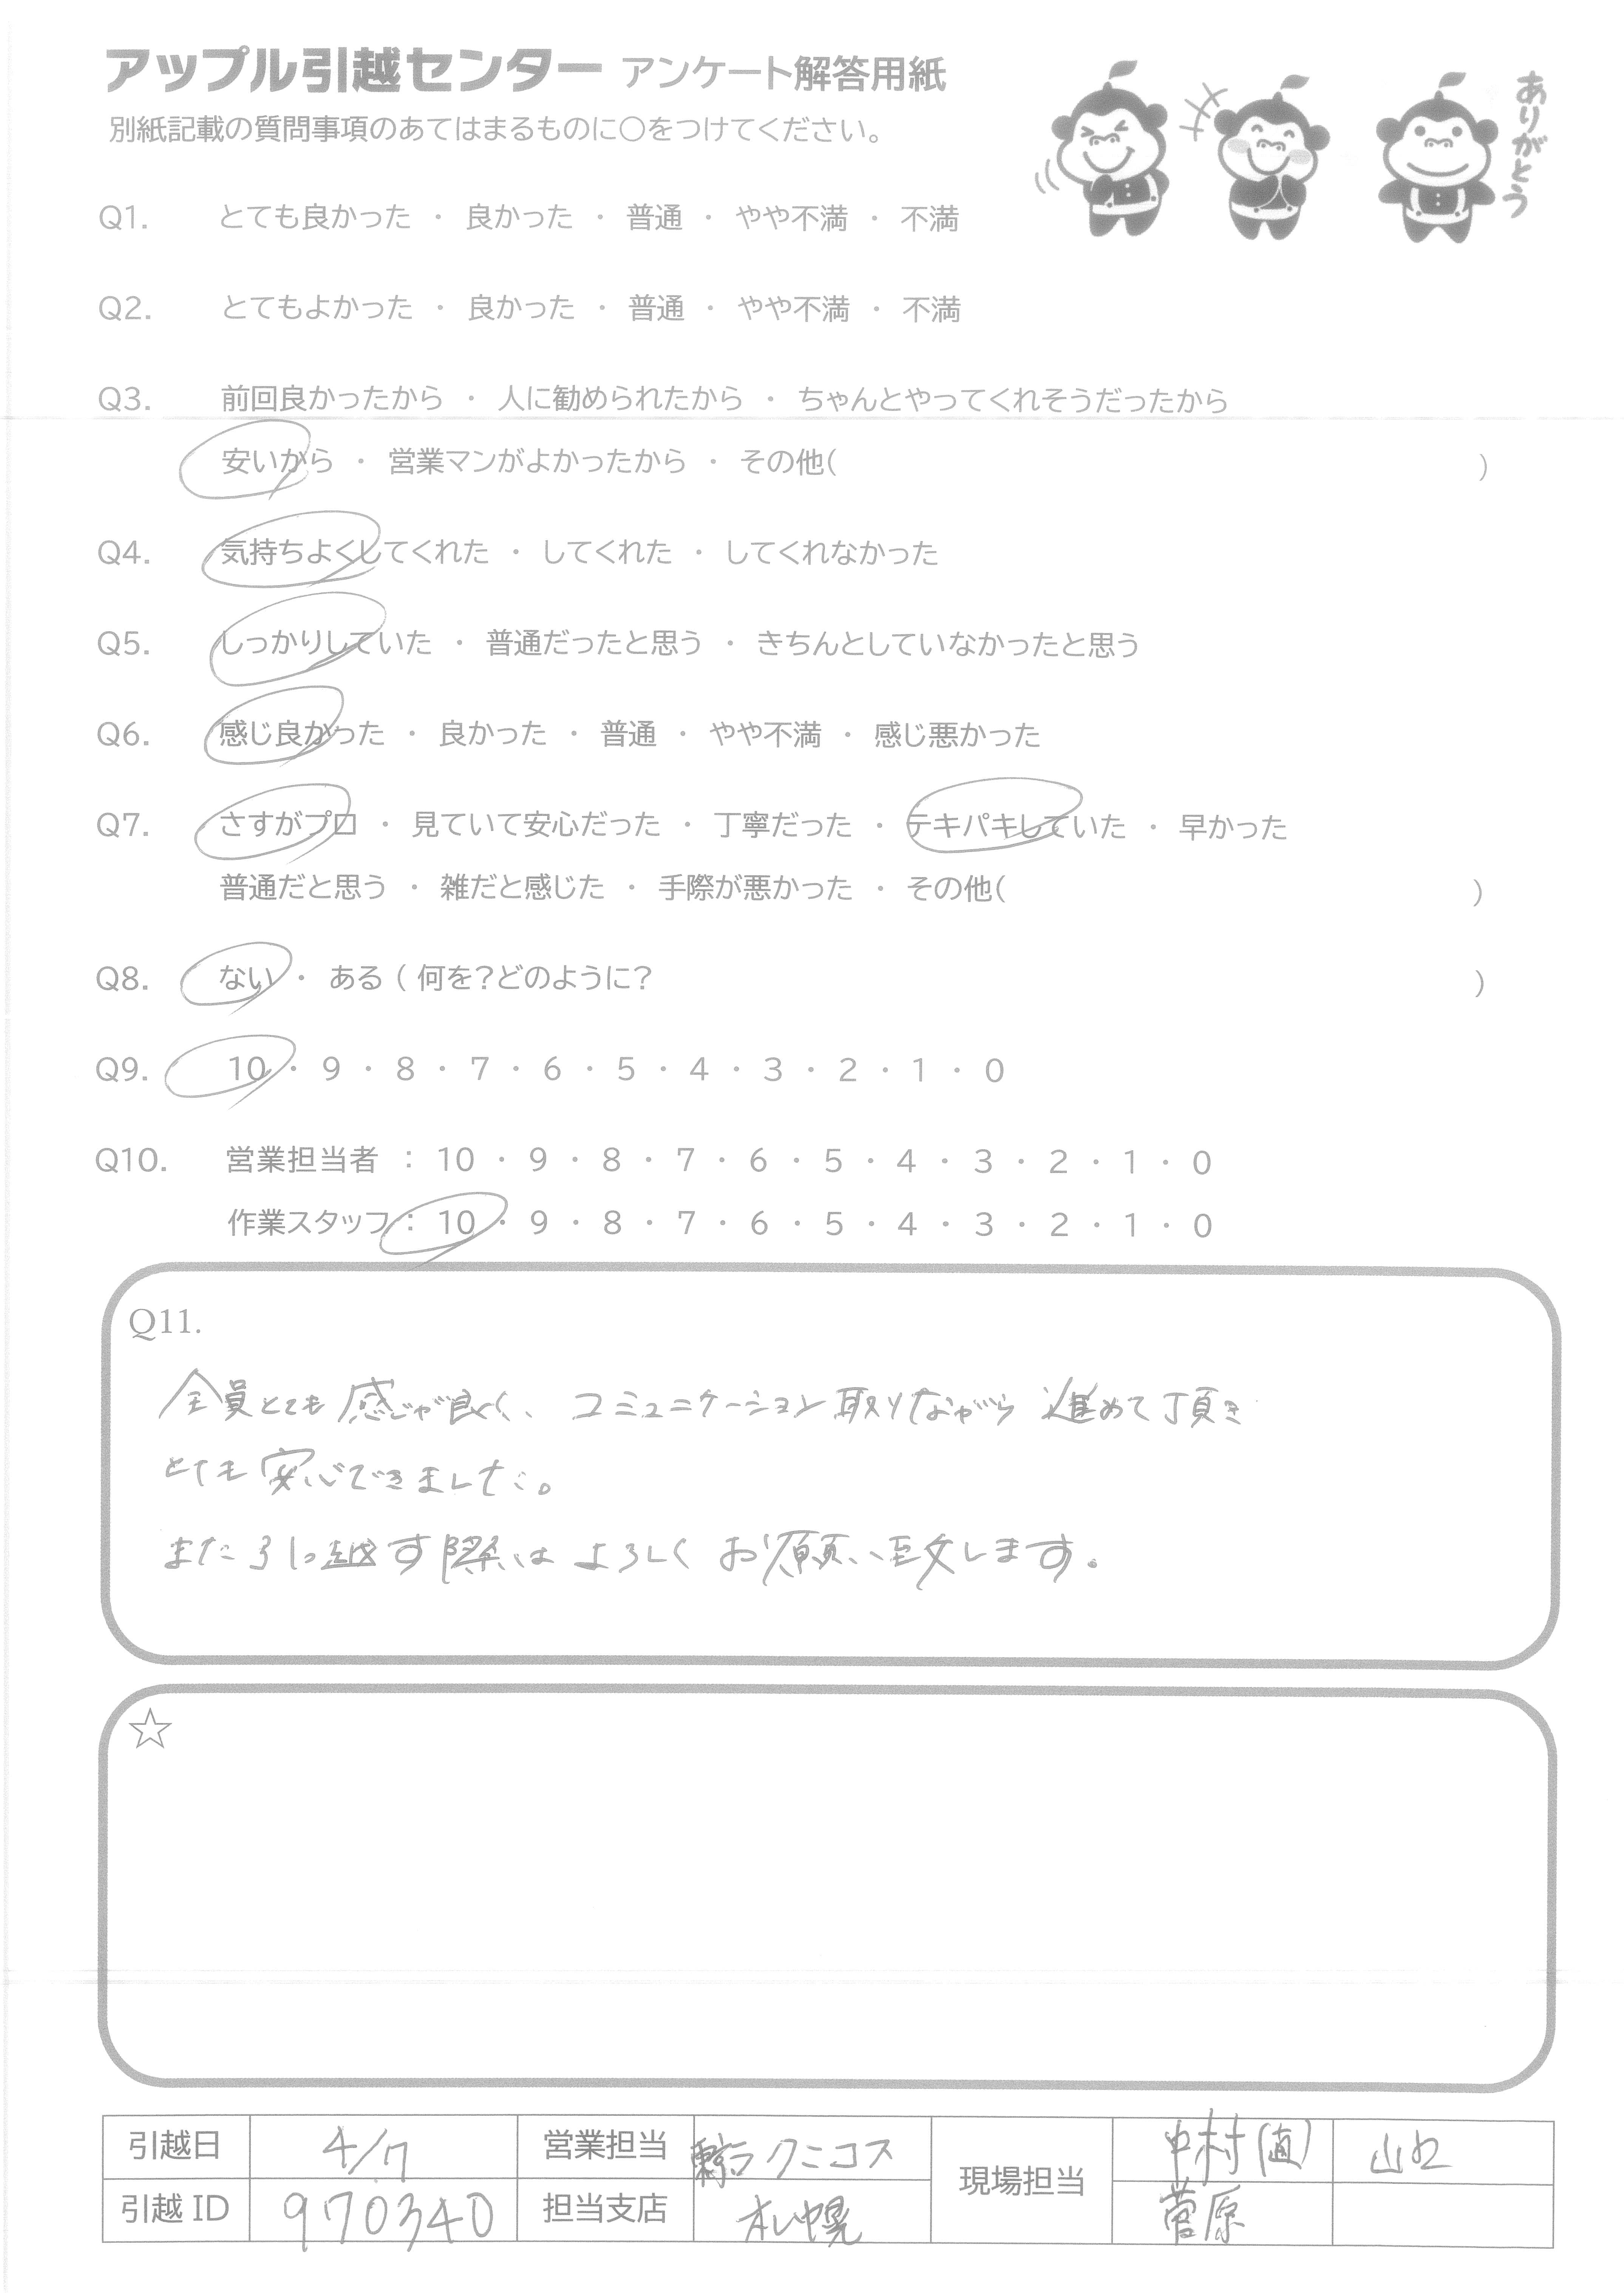 アップル引越センター アンケート解答用紙
別紙記載の質問事項のあてはまるものに○をつけてください。
ありがとう
Q1. とても良かった ・ 良かった ・ 普通 ・ やや不満 ・ 不満
Q2. とてもよかった ・ 良かった ・ 普通 ・ やや不満 ・ 不満
Q3. 前回良かったから ・ 人に勧められたから ・ ちゃんとやってくれそうだったから
安いから ・ 営業マンがよかったから ・ その他( )
Q4. 気持ちよくしてくれた ・ してくれた ・ してくれなかった
Q5. しっかりしていた ・ 普通だったと思う ・ きちんとしていなかったと思う
Q6. 感じ良かった ・ 良かった ・ 普通 ・ やや不満 ・ 感じ悪かった
Q7. さすがプロ ・ 見ていて安心だった ・ 丁寧だった ・ テキパキしていた ・ 早かった
普通だと思う ・ 雑だと感じた ・ 手際が悪かった ・ その他( )
Q8. ない ・ ある ( 何を?どのように? )
Q9. 10 ・ 9 ・ 8 ・ 7 ・ 6 ・ 5 ・ 4 ・ 3 ・ 2 ・ 1 ・ 0
Q10. 営業担当者 : 10 ・ 9 ・ 8 ・ 7 ・ 6 ・ 5 ・ 4 ・ 3 ・ 2 ・ 1 ・ 0
作業スタッフ : 10 ・ 9 ・ 8 ・ 7 ・ 6 ・ 5 ・ 4 ・ 3 ・ 2 ・ 1 ・ 0
Q11.
全員とても感じが良く、コミュニケーション取りながら進めて頂き
とても安心できました。
また引っ越す際はよろしくお願い致します。
☆
引越日 4/7 営業担当 ラクニコス 現場担当 中村(直)
引越 ID 970340 担当支店 札幌 菅原